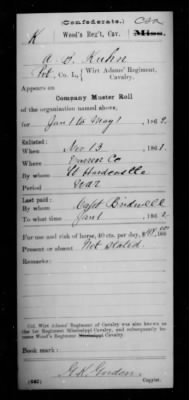 (Confederate.) CSA
K Wood's Reg't, Cav. Miss.
A. D. Kuhn
Pvt, Co. L, Wirt Adams' Regiment, Cavalry.
Appears on
Company Muster Roll
of the organization named above,
for Jan 1 to May 1, 1862.
Enlisted:
When Nov 13, 1861.
Where Co
By whom W Hardcastle
Period War
Last paid:
By whom Capt Bridwell
To what time Jan 1, 1862.
For use and risk of horse, 40 cts. per day, $
Present or absent Not stated.
Remarks:
Col. Wirt Adams' Regiment of Cavalry was also known as
the 1st Regiment Mississippi Cavalry, and subsequently became
Wood's Regiment Mississippi Cavalry.
Book mark:
G. K. Gordon
(642) Copyist.